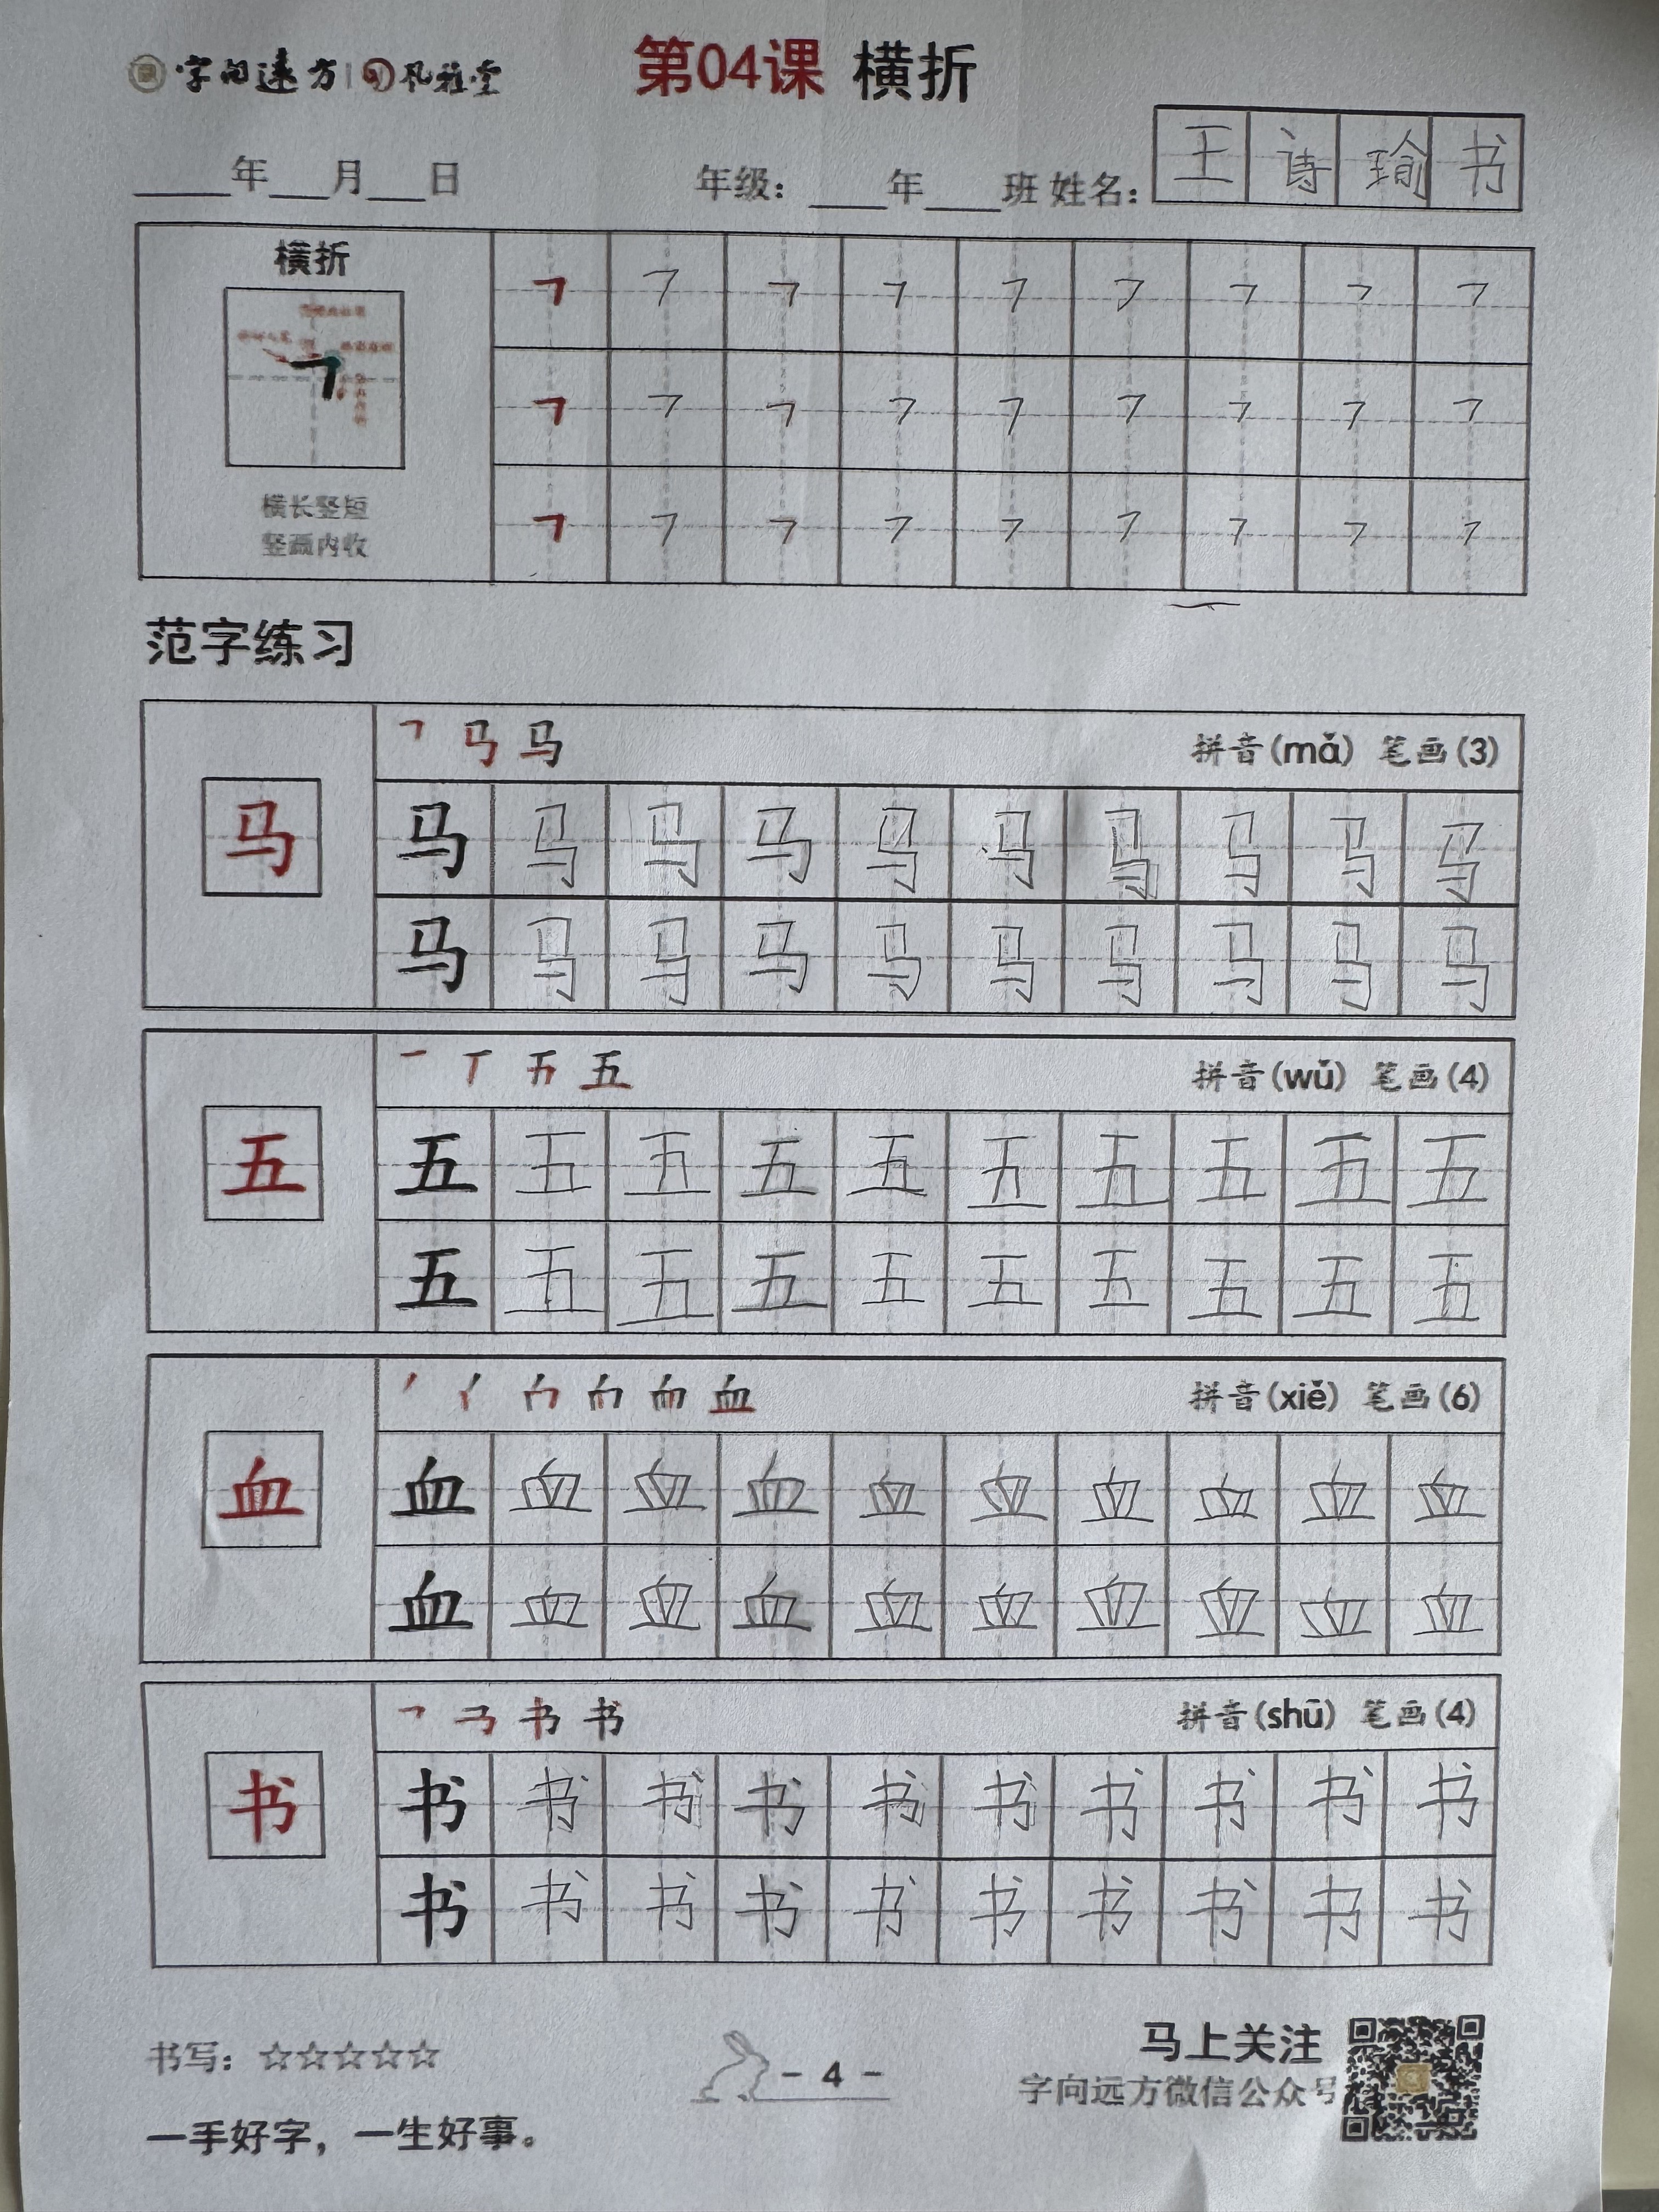 字向远方 | 风雅堂
第04课 横折
____年___月___日 年级：____年____班 姓名：王诗瑜书
横折
横长竖短
竖画内收
范字练习
拼音(mǎ) 笔画(3)
马 马 马 马 马 马 马 马 马 马 马
马 马 马 马 马 马 马 马 马 马
拼音(wǔ) 笔画(4)
五 五 五 五 五 五 五 五 五 五 五
五 五 五 五 五 五 五 五 五 五
拼音(xiě) 笔画(6)
血 血 血 血 血 血 血 血 血 血 血
血 血 血 血 血 血 血 血 血 血
拼音(shū) 笔画(4)
书 书 书 书 书 书 书 书 书 书 书
书 书 书 书 书 书 书 书 书 书
书写：☆☆☆☆☆
- 4 -
马上关注
字向远方微信公众号
一手好字，一生好事。